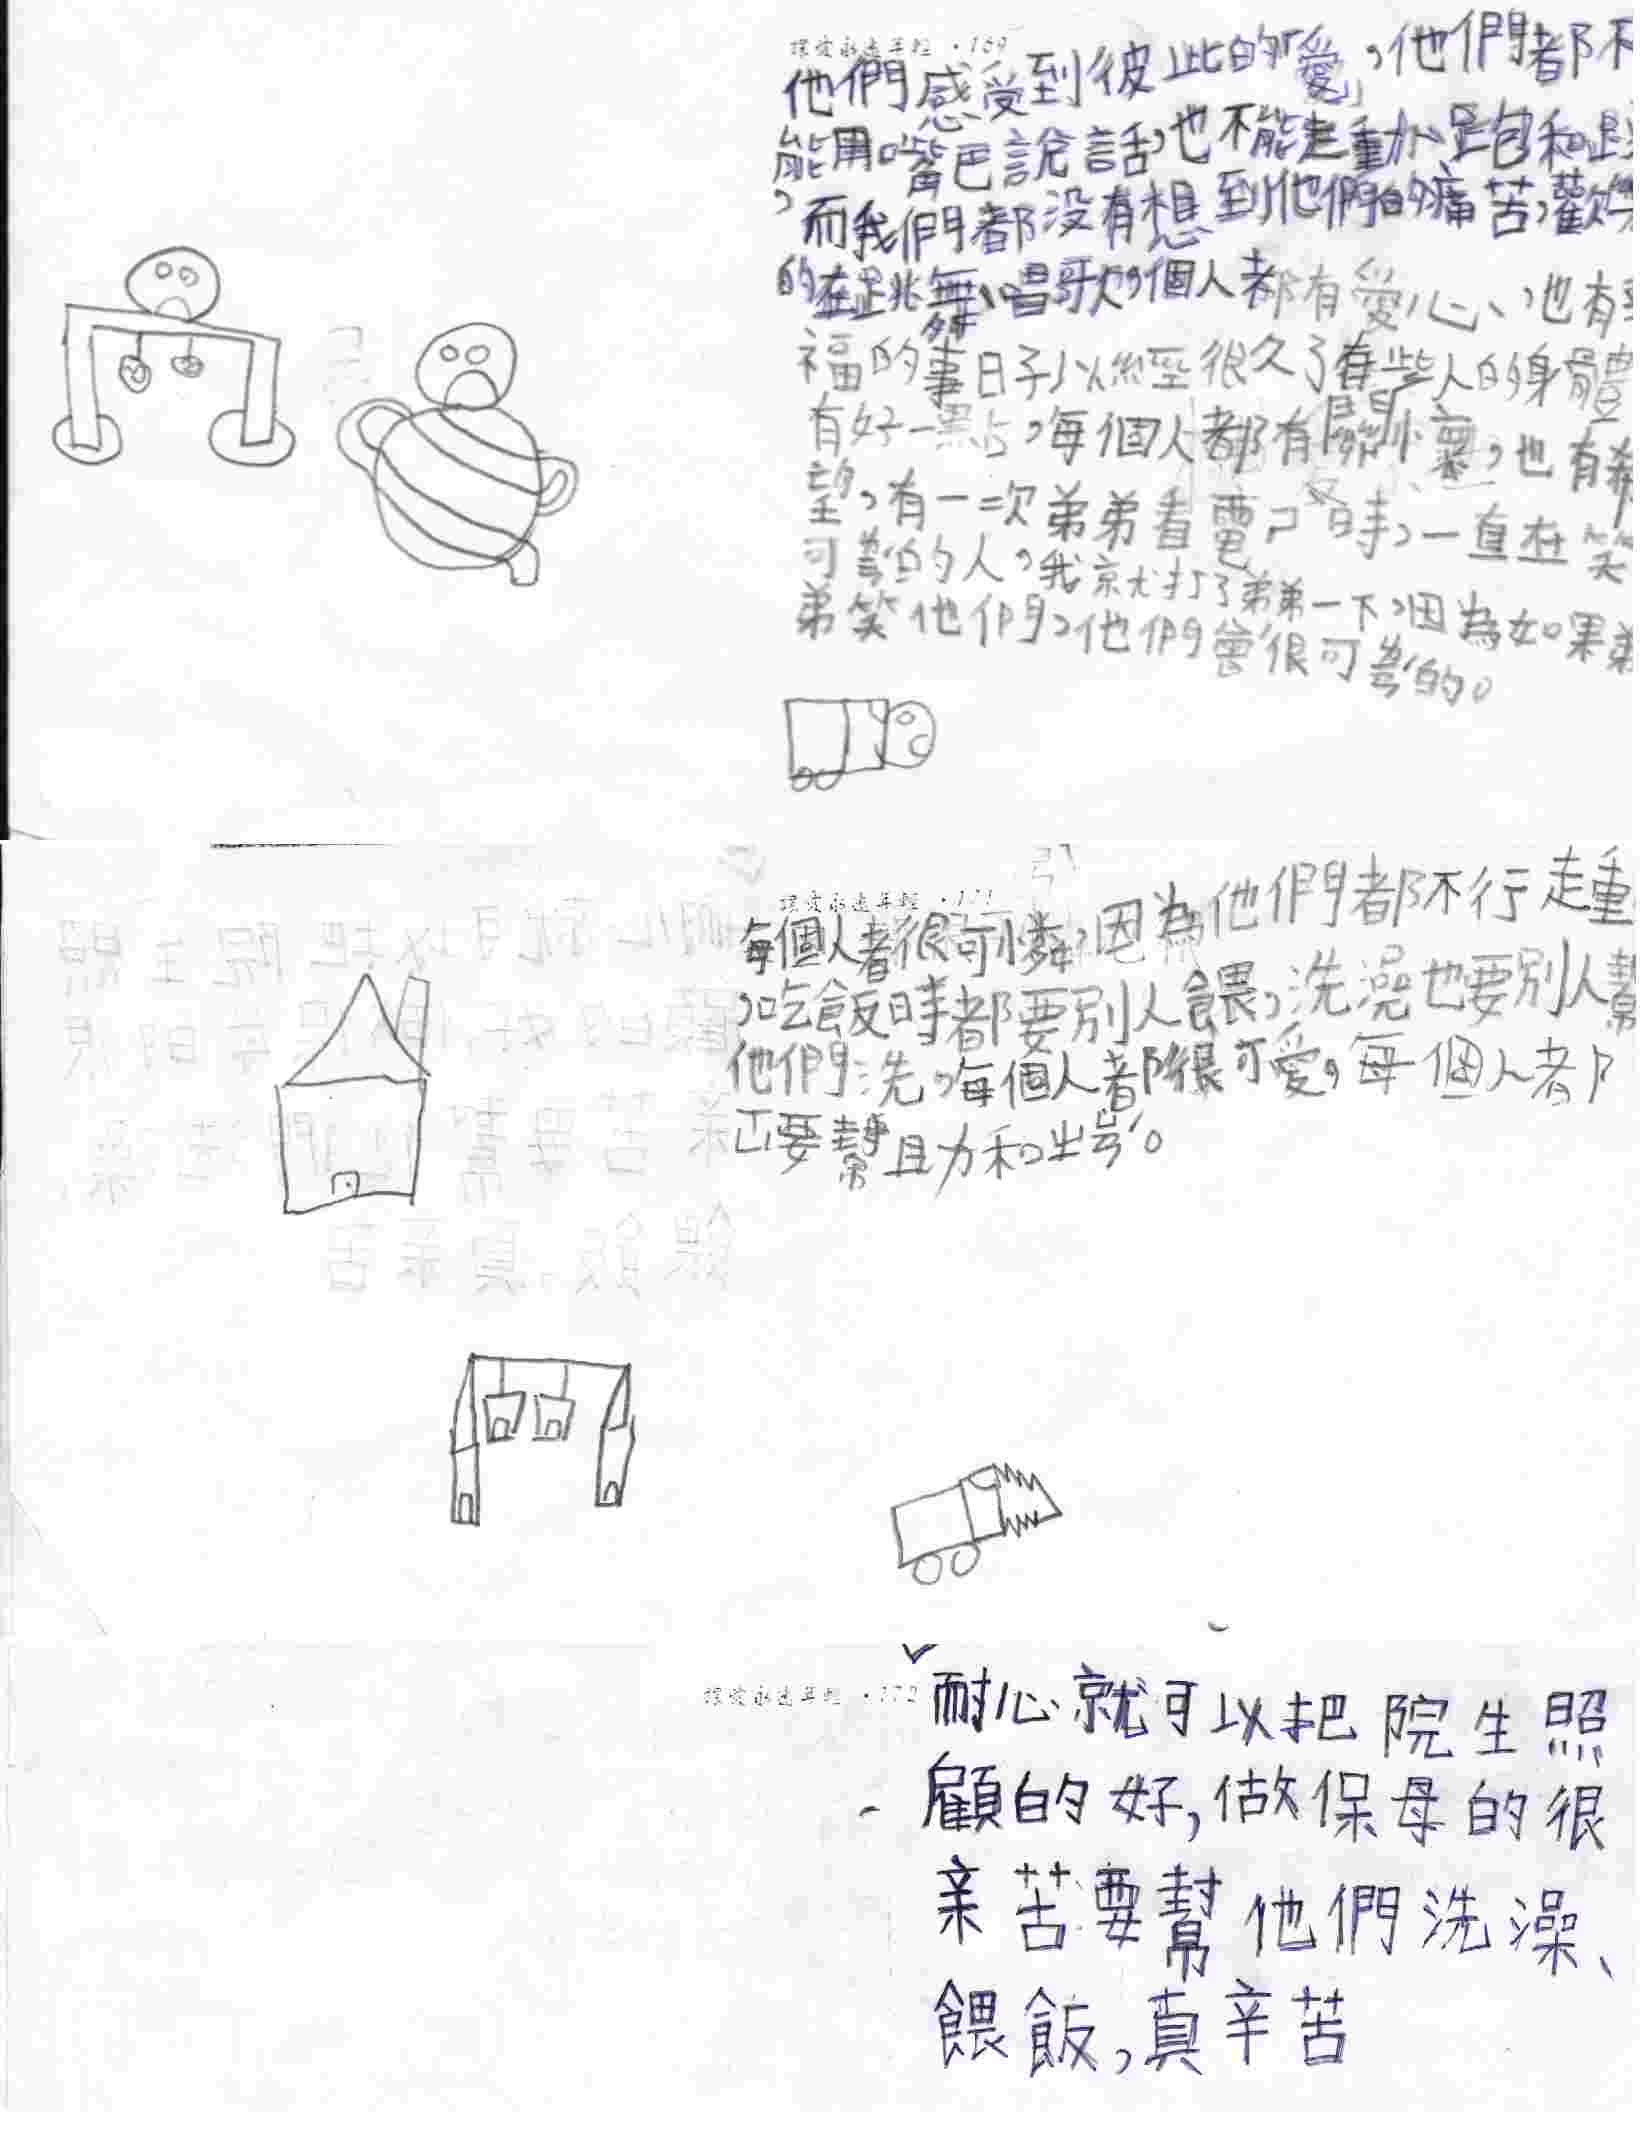 讓愛永遠年輕 ·169
他們感受到彼此的「愛」,他們都不
能用嘴巴說話,也不能走動、跑和跳
,而我們都沒有想到他們的痛苦,歡樂
的在跳舞、唱歌,個人都有愛心、,也有幸
福的事日子以經很久了有些人的身體
有好一點,每個人都有關懷,也有希
望,有一次弟弟看電ㄕˋ時,一直在笑
可ㄌㄧㄢˊ的人,我就打了弟弟一下,因為如果弟
弟笑他們,他們會很可ㄌㄧㄢˊ的。
讓愛永遠年輕 ·171
每個人都很可憐,因為他們都不行走動
,吃飯時都要別人餵,洗澡也要別人幫
他們洗,每個人都很可愛,每個人都
ㄒㄩ要幫助和
讓愛永遠年輕 ·172
耐心就可以把院生照
顧的好,做保母的很
辛苦要幫他們洗澡、
餵飯,真辛苦